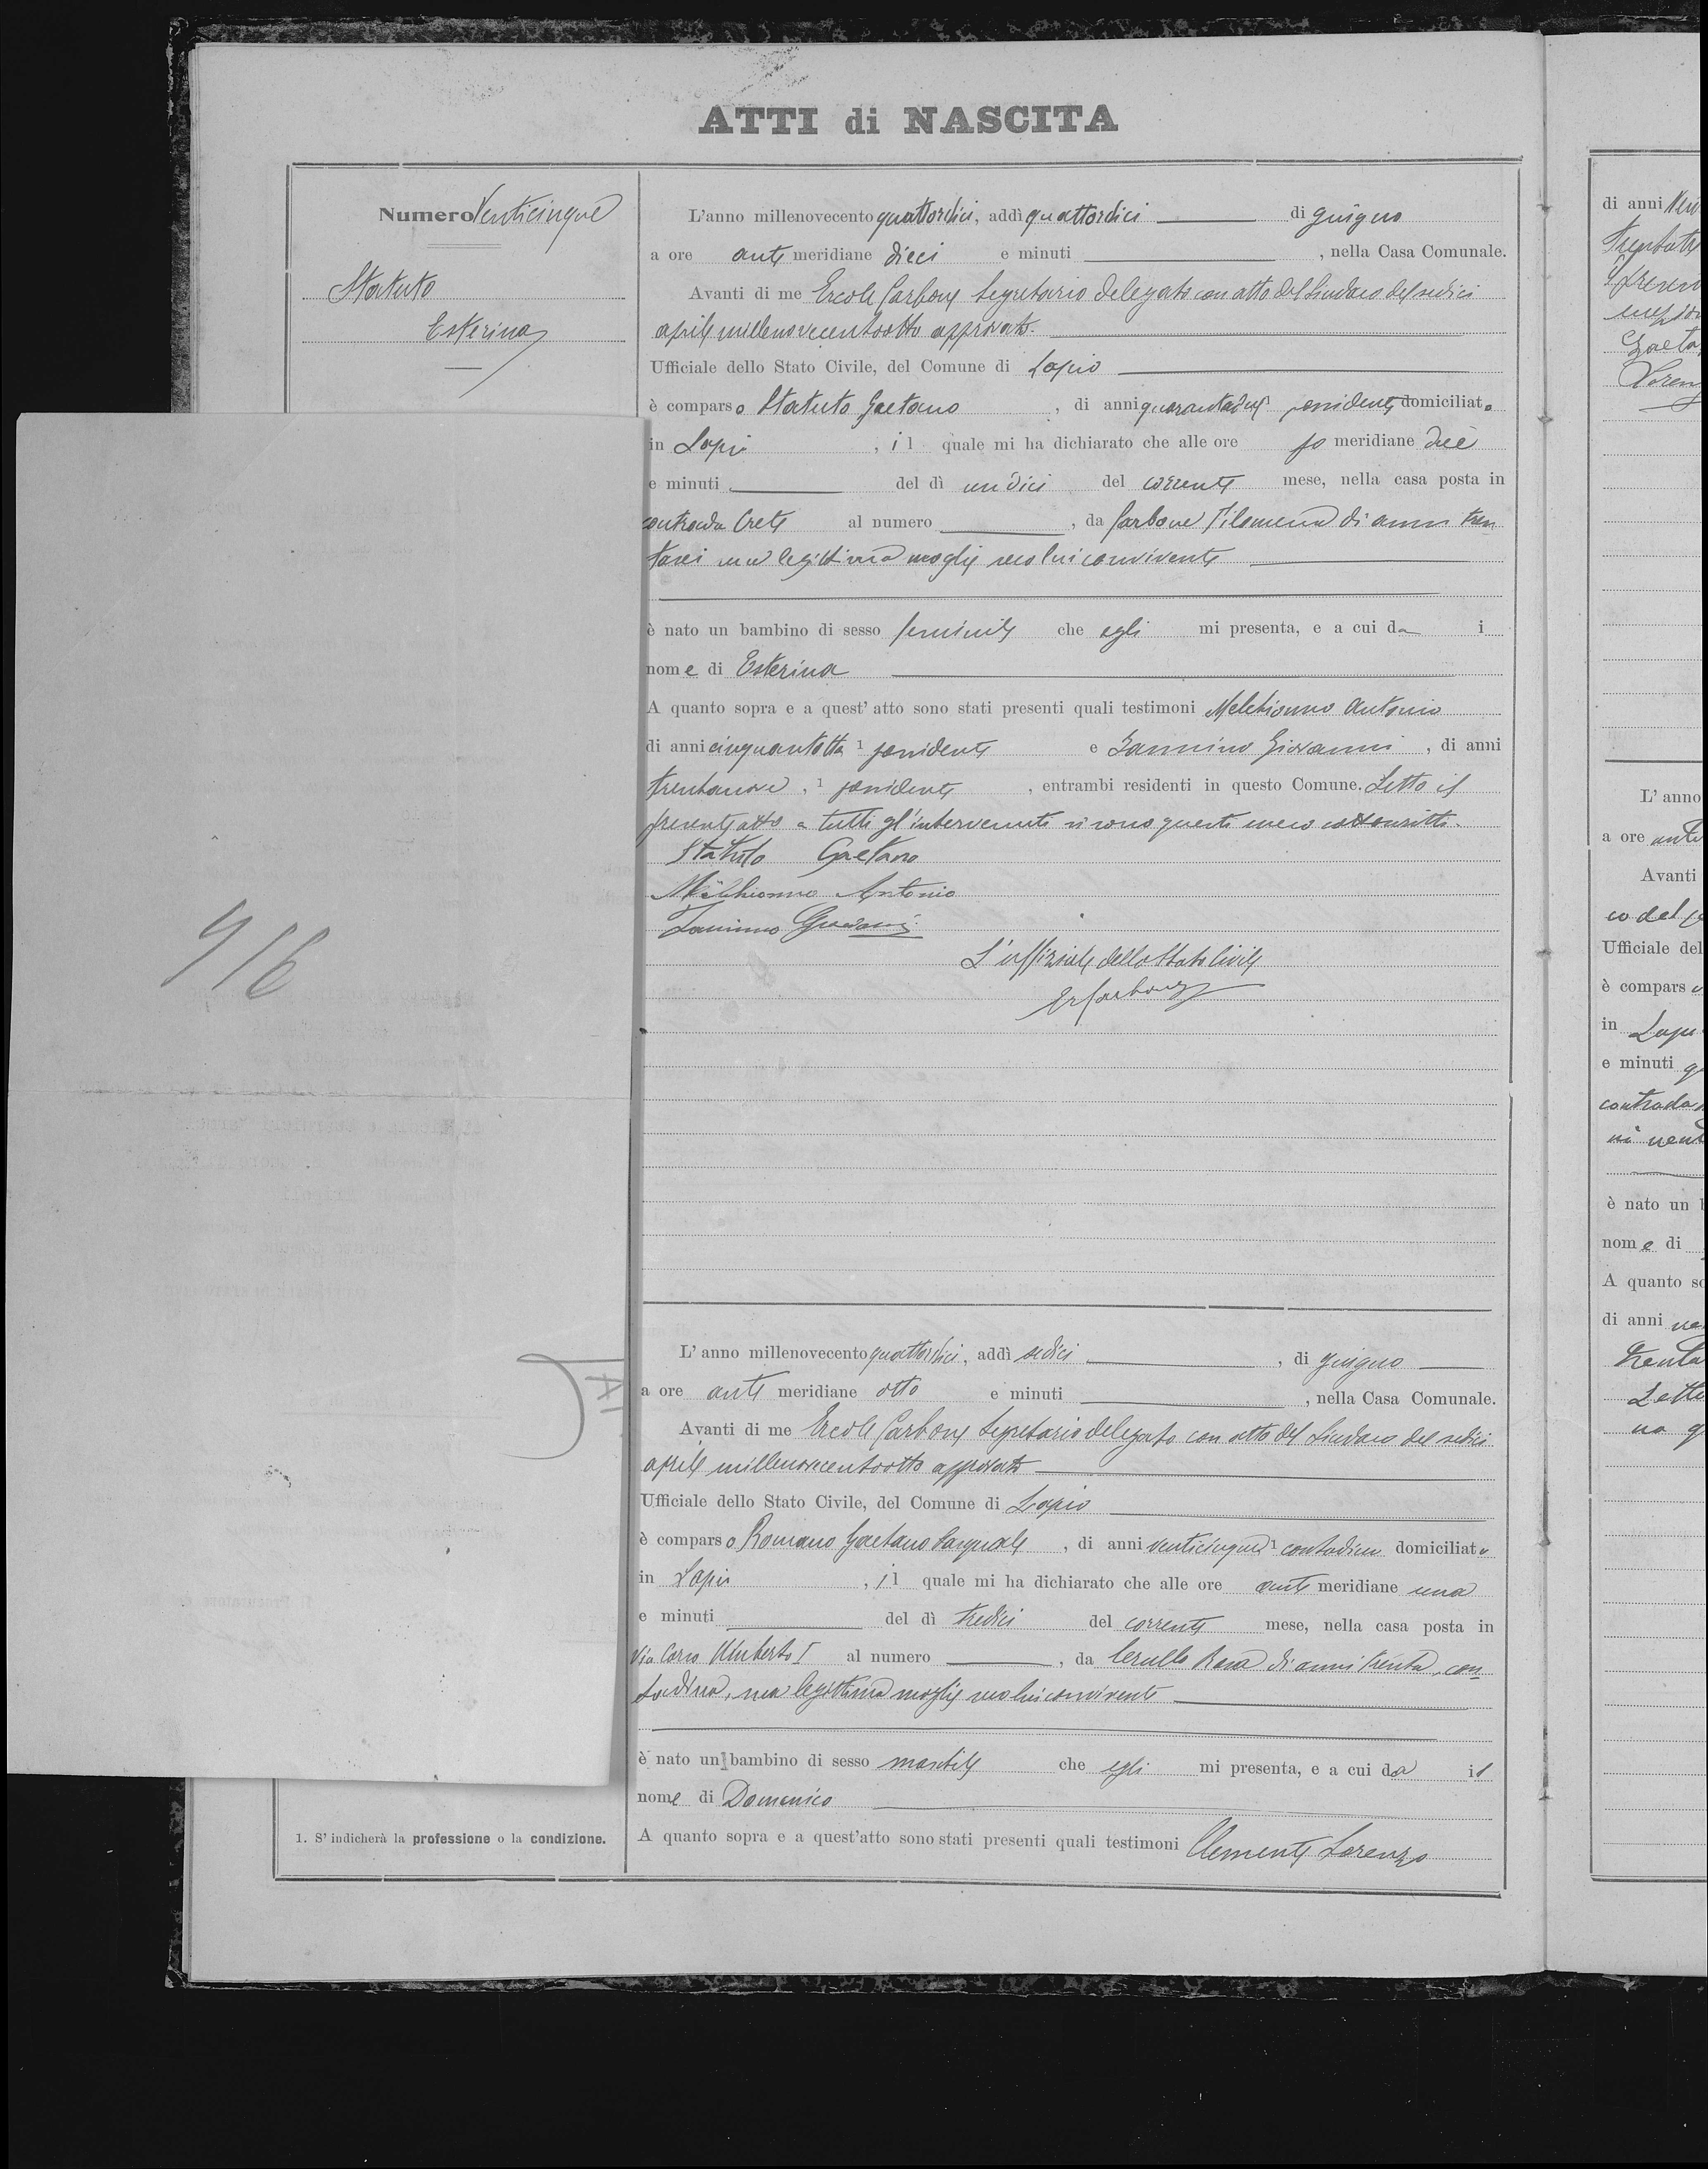 ATTI di NASCITA
Numero Venticinque
Statuto
Esterina
L'anno millenovecento quattordici, addì quattordici di giugno
a ore anti meridiane dieci e minuti , nella Casa Comunale.
Avanti di me Ercole Carbone Segretario delegato con atto del Sindaco del sedici
aprile millenovecentootto approvato.
Ufficiale dello Stato Civile, del Comune di Lapio
è comparso Statuto Gaetano , di anni possidente domiciliato
in Lapio , il quale mi ha dichiarato che alle ore po meridiane
e minuti del dì undici del corrente mese, nella casa posta in
contrada Crete al numero , da Carbone Filomena di anni tren
tasei sua legittima moglie seco lui convivente
è nato un bambino di sesso feminile che egli mi presenta, e a cui da i
nome di Esterina
A quanto sopra e a quest'atto sono stati presenti quali testimoni Melchionno Antonio
di anni cinquantotto 1 possidente e Iannino Giovanni , di anni
trentanove , 1 possidente , entrambi residenti in questo Comune. Letto il
presente atto a tutti gl'intervenuti si sono questi meco sottoscritti.
Statuto Gaetano
Melchionno Antonio
Iannino Giovanni
L'uffiziale dello Stato Civile
ErCarbone
916
L'anno millenovecento quattordici, addì sedici , di giugno
a ore anti meridiane otto e minuti , nella Casa Comunale.
Avanti di me Ercole Carbone Segretario delegato con atto del Sindaco del sedici
aprile millenovecentootto approvato
Ufficiale dello Stato Civile, del Comune di Lapio
è comparso Romano Gaetano Pasquale , di anni venticinque 1 contadino domiciliato
in Lapio , il quale mi ha dichiarato che alle ore anti meridiane una
e minuti del dì tredici del corrente mese, nella casa posta in
Via Corso Umberto I al numero , da Cerullo Rosa di anni trenta, con
tadina, sua legittima moglie seco lui convivente
è nato un bambino di sesso maschile che egli mi presenta, e a cui da il
nome di Domenico
1. S'indicherà la professione o la condizione.
A quanto sopra e a quest'atto sono stati presenti quali testimoni Clemente Lorenzo
di anni
Gaeta
L'anno
a ore anti
Avanti
co del
Ufficiale del
è compars
in Lapi
e minuti
contrada
è nato un
nome di
A quanto so
di anni
trenta
Letto